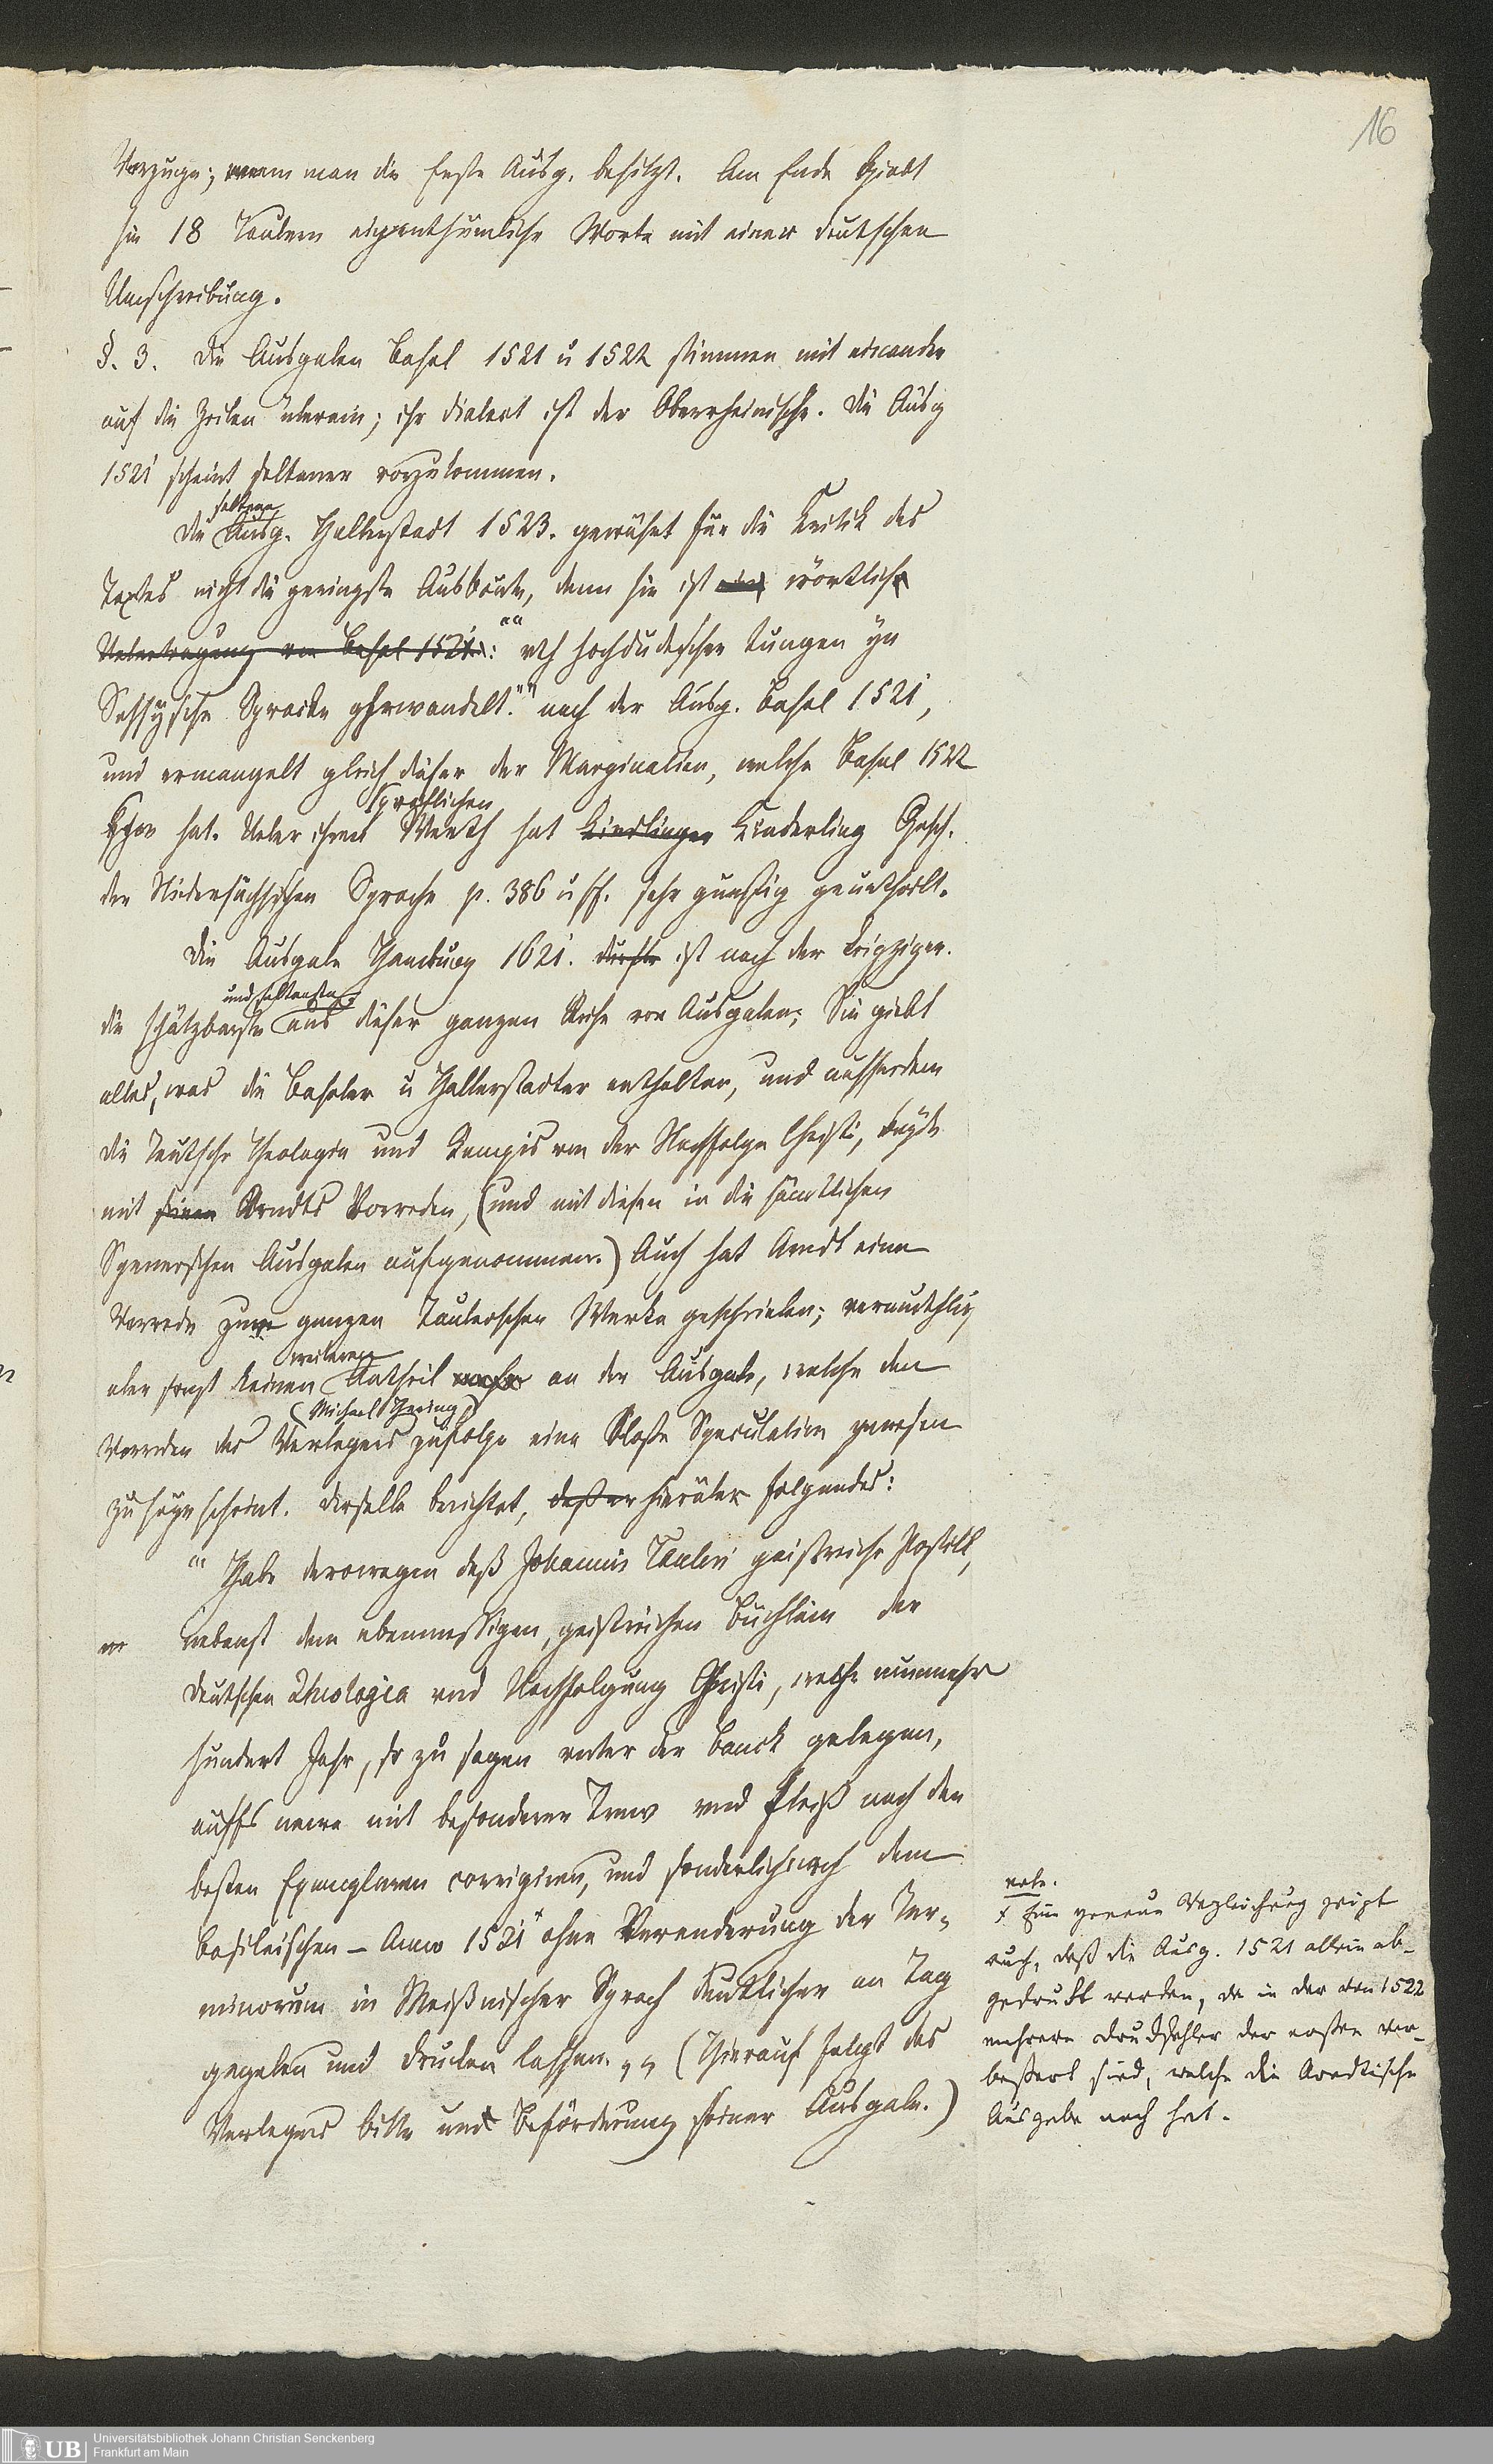 16
Vorzuge; wenn man die Erste Ausg. besitzt. Am Ende giebt
sie 18 Taulern eigenthümliche Worte mit einer deutschen
Umschreibung.
§. 3. Die Ausgaben Basel 1521 u 1522 stimmen mit einander
auf die Zeilen überein; ihr Dialect ist der Oberrheinische. Die Ausg
1521 scheint seltener vorzukommen.
seltene
Die Ausg. Halberstadt 1523. gewährt für die Kritik des
Textes nicht die geringste Ausbeute, denn sie ist eine wörtliche
Uebertragung von Basel 1521.: "" uth hochdudescher tungen yn
Sassysche Spracke ghewandelt."" nach der Ausg. Basel 1521,
und ermangelt gleich dieser der Marginalien, welche Basel 1522
sprachlichen
schon hat. Ueber ihren Werth hat Kindlinger Kinderling Gesch.
der Niedersächsischen Sprache p. 386 u ff. sehr günstig geurtheilt.
Die Ausgabe Hamburg 1621. dürfte ist nach der Leipziger.
und seltenste
die schätzbarste aus dieser ganzen Reihe von Ausgaben; Sie giebt
alles, was die Baseler u Halberstadter enthalten, und ausserdem
die Teutsche Theologia und Kempis von der Nachfolge Christi, beyde
mit seinen Arndts Vorreden, (und mit diesen in die sämtlichen
Spenerschen Ausgaben aufgenommen.) Auch hat Arndt eine
Vorrede zum ganzen Taulerschen Werke geschrieben; vermuthlich
weiteren
aber sonst keinen Antheil an der Ausgabe, welche den
(Michael Hering)
Vorreden des Verlegers zufolge eine bloße Speculation gewesen
zu seyn scheint. Derselbe berichtet, daß er hierüber folgendes:
"" Habe derowegen deß Johannis Tauleri geistreiche Postill,
nebenst dem ebenmessigen, geistreichen Büchlein der
Deutschen Theologia und Nachfolgung Christi, welche nunmehr
hundert Jahr, so zu sagen unter der Banck gelegen,
auffs newe mit besonderer Trew und Fleiß nach den
besten Exemplaren corrigiren, und sonderlich nach dem
Basileischen – Anno 1521 x ohne Verenderung der Ter-
minorum in Meißnischer Sprach deutlicher an Tag
gegeben und drucken lassen. „„ (Hierauf folgt des
Verlegers bitte um Beförderung seiner Ausgabe.)
note.
x Eine genaue Vergleichung zeigt
auch, daß die Ausg. 1521 allein ab-
gedruckt worden, da in der von 1522
mehrere Druckfehler der ersten ver-
bessert sind, welche die Arndtische
Ausgabe noch hat.
UB
Universitätsbibliothek Johann Christian Senckenberg
Frankfurt am Main